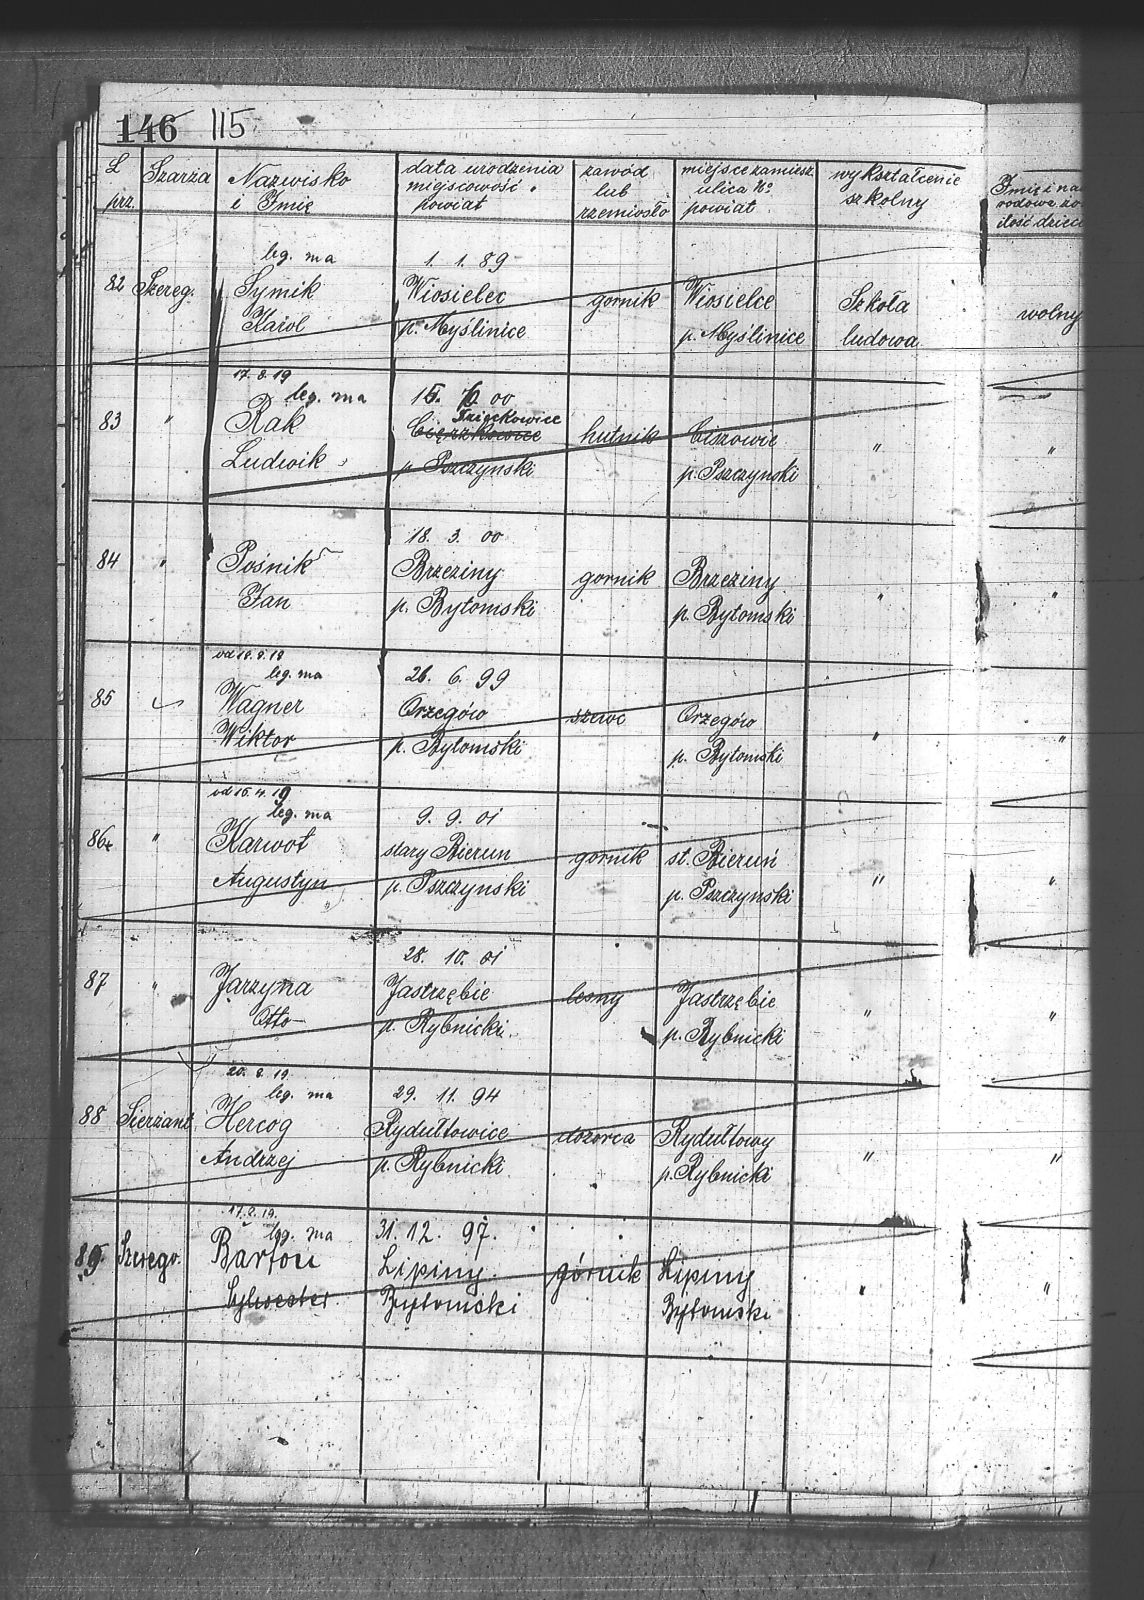 146 115
L prz
Szarża
Nazwisko
i Imię
data urodzenia
miejscowość
powiat
zawód
lub
rzemiosło
miejsce zamiesz.
ulica No
powiat
wykształcenie
szkolny
Imię i na
rodowa żo
ilość dzieci
leg. ma 1. 1. 89
82 Szereg. Symik Wiosielec gornik Wiosielce Szkoła wolny
Karol p. Myślinice p. Myślinice ludowa
17.8.19
leg. ma 15. 7. 00
83 " Rak Cięrzkowice hutnik Ciszowie " "
Ludwik p. Pszczynski p. Pszczynski
18. 3. 00
84 " Pośnik Brzeziny gornik Brzeziny " "
Jan p. Bytomski p. Bytomski
od 18.8.19
leg. ma 26. 6. 99
85 Wagner Orzegów szewc Orzegów " "
Wiktor p. Bytomski p. Bytomski
od 16.4.19
leg. ma 9. 9. 01
86 " Karwot stary Bierun gornik st. Bieruń " "
Augustyn p. Pszczynski p. Pszczynski
28. 10. 01
87 " Jarzyna Jastrzębie lesny Jastrzębie " "
Otto p. Rybnicki p. Rybnicki
20. 8. 19
leg. ma 29. 11. 94
88 Sierżant Hercog Rydułtowice dozorca Rydułtowy " "
Andrzej p. Rybnicki p. Rybnicki
17.8.19.
leg. ma 31. 12. 97.
89. Szerego. Barton Lipiny górnik Lipiny " "
Sylwester Bytomski Bytomski